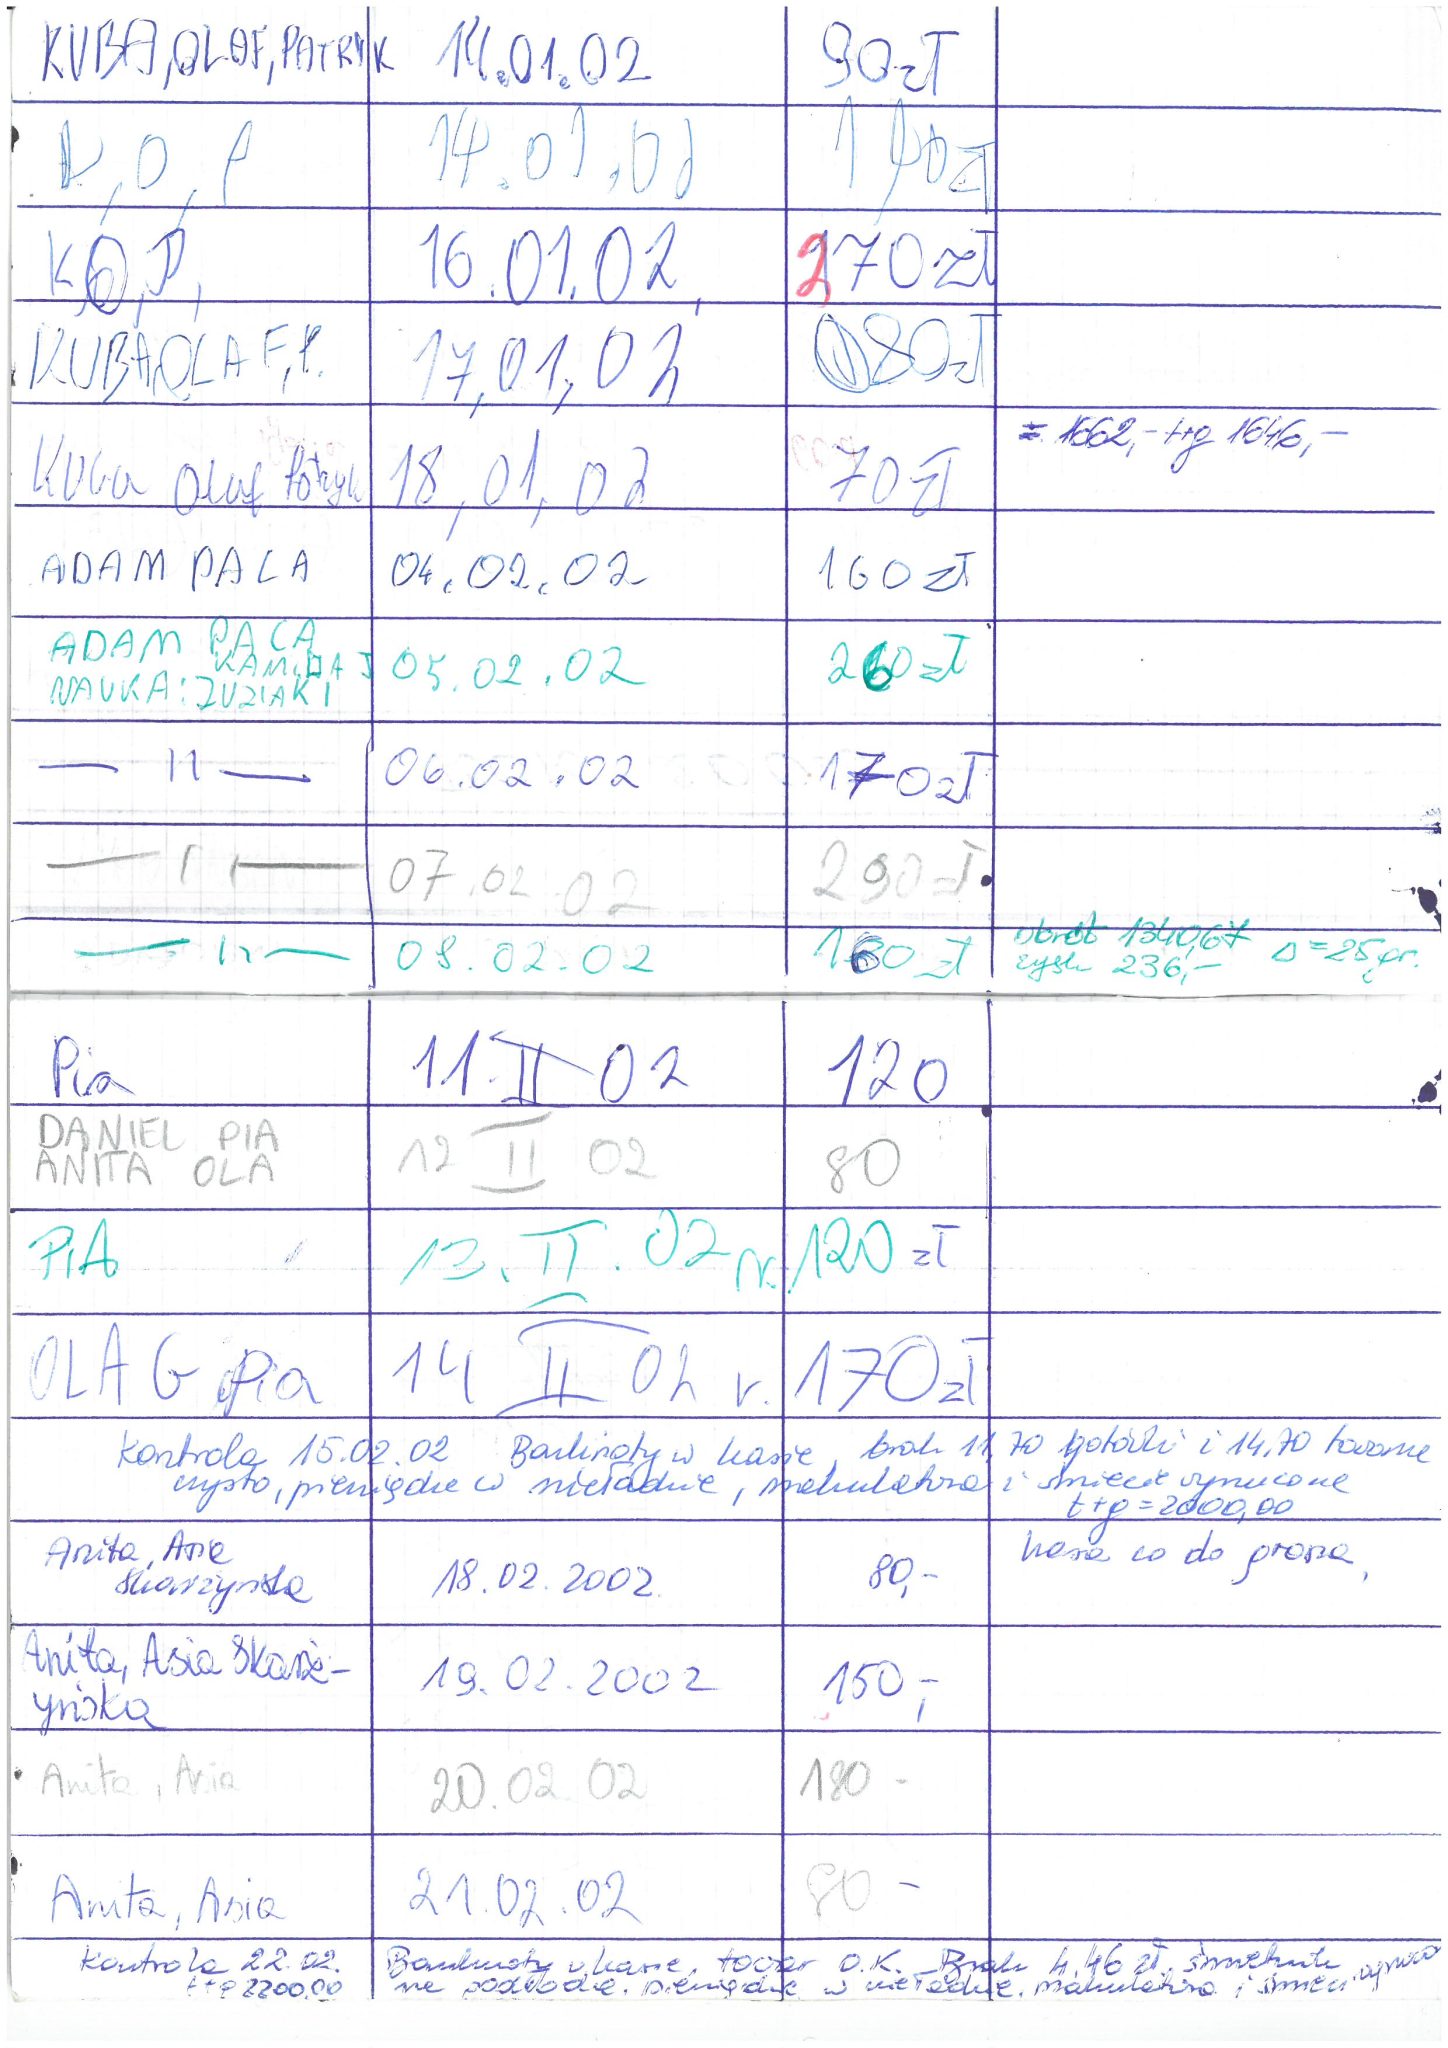 KUBA, OLAF, PATRYK 14.01.02 90 zł
K, O, P 14.01.02 140 zł
K, O, P, 16.01.02, 270 zł
KUBA, OLAF, P. 17,01,02 80 zł
= 1662,- t+g 1646,-
Kuba Olaf Patryk 18,01,02 70 zł
ADAM PACA 04.02.02 160 zł
ADAM PACA
KAMILA J
NAUKA: ZUZIAKI 05.02.02 260 zł
— 11 — 06.02.02 170 zł
— 11 — 07.02.02 290 zł
— 11 — 08.02.02 160 zł obrót 1340,67 Δ = 25 gr.
zysk 236,-
Pia 11 II 02 120
DANIEL PIA
ANITA OLA 12 II 02 80
PIA 13. II. 02 r. 120 zł
OLA G Pia 14 II 02 r. 170 zł
Kontrola 15.02.02 Banknoty w kasie, brak 11,70 gotówki i 14,70 towaru
czysto, pieniądze w nieładzie, makulatura i śmieci wyrzucone
t+g = 2000,00
Anita, Asia
Skarżyńska 18.02.2002. 80,- kasa co do grosza,
Anita, Asia Skarż-
yńska 19.02.2002 150,-
Anita, Asia 20.02.02 180 -
Anita, Asia 21.02.02 80 -
Kontrola 22.02. Banknoty w kasie, towar O.K. Brak 4,46 zł,
t+g 2200,00 na podłodze, pieniądze w nieładzie, makulatura i śmieci